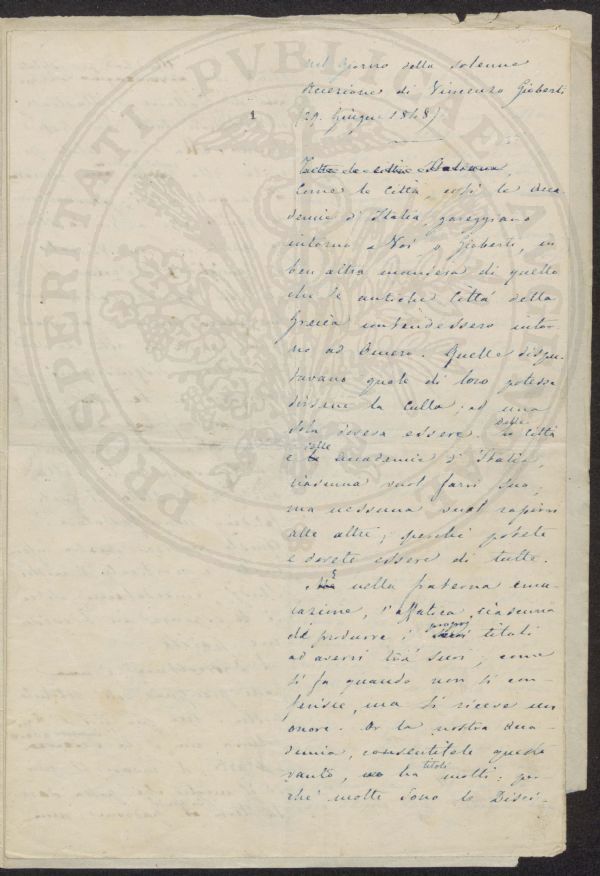 1
nel giorno della solenne
Aggregazione di Vincenzo Gioberti
(29. Giugno 1848)
Come le Città, così le Acca-
demie d'Italia, gareggiano
intorno a Voi o Gioberti, in
ben altra maniera di quello
che le antiche Città della
Grecia contendessero intor-
no ad Omero. Quelle dispu-
tavano quale di loro potesse
dirsene la culla; ad una
sola doveva essere. delle Città
e delle Accademie d'Italia,
ciascuna vuol farvi suo,
ma nessuna vuol rapirvi
alle altre; perchè potete
e dovete essere di tutte.
E nella fraterna emu-
lazione, s'affatica ciascuna
di produrre i proprj titoli
ad avervi tra' suoi, come
si fa quando non si con-
ferisce, ma si riceve un
onore. Or la nostra Acca-
demia, consentitele questo
vanto, ha titoli molti: per-
chè molte sono le Disci-
PROSPERITATI PVBLICAE AVGENDAE